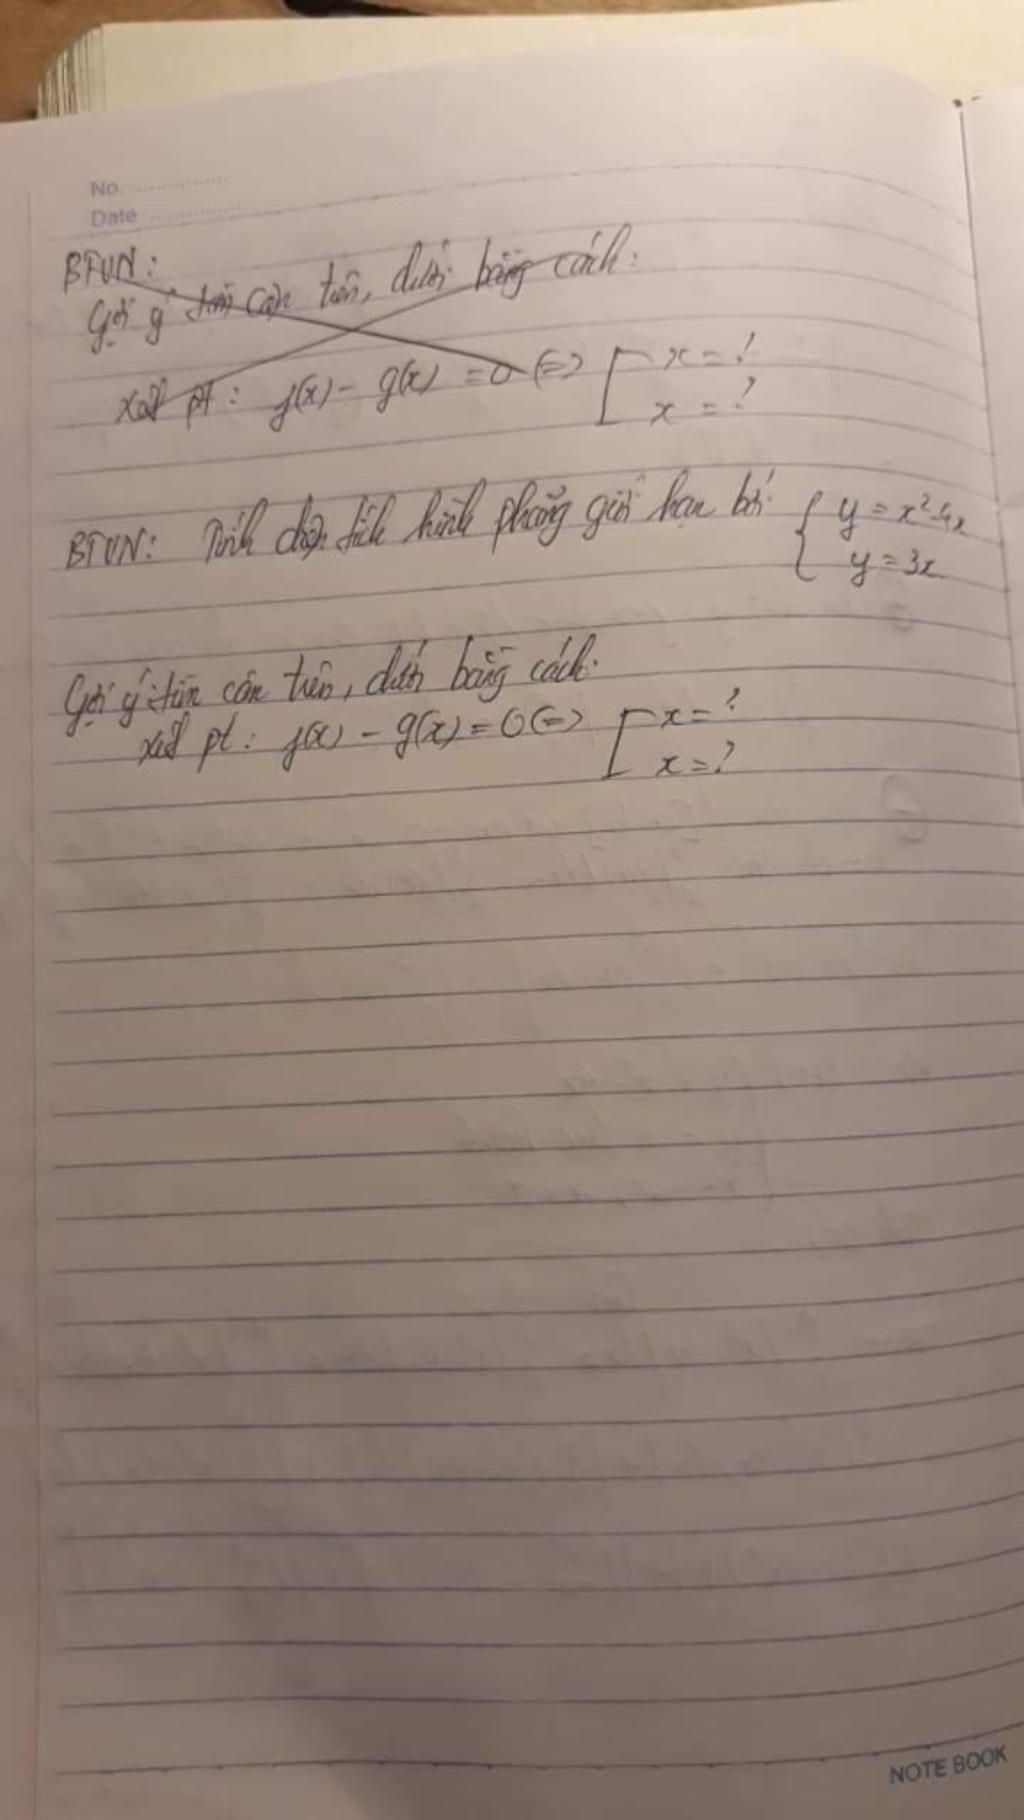 No. ................
Date ................
BTVN:
Gợi ý tìm cận trên, dưới bằng cách:
xét pt: f(x) - g(x) = 0 (=) [ x = ?
x = ?
BTVN: Tính diện tích hình phẳng giới hạn bởi { y = x² - 4x
y = 3x
Gợi ý: tìm cận trên, dưới bằng cách.
xét pt: f(x) - g(x) = 0 (=) [ x = ?
x = ?
NOTE BOOK